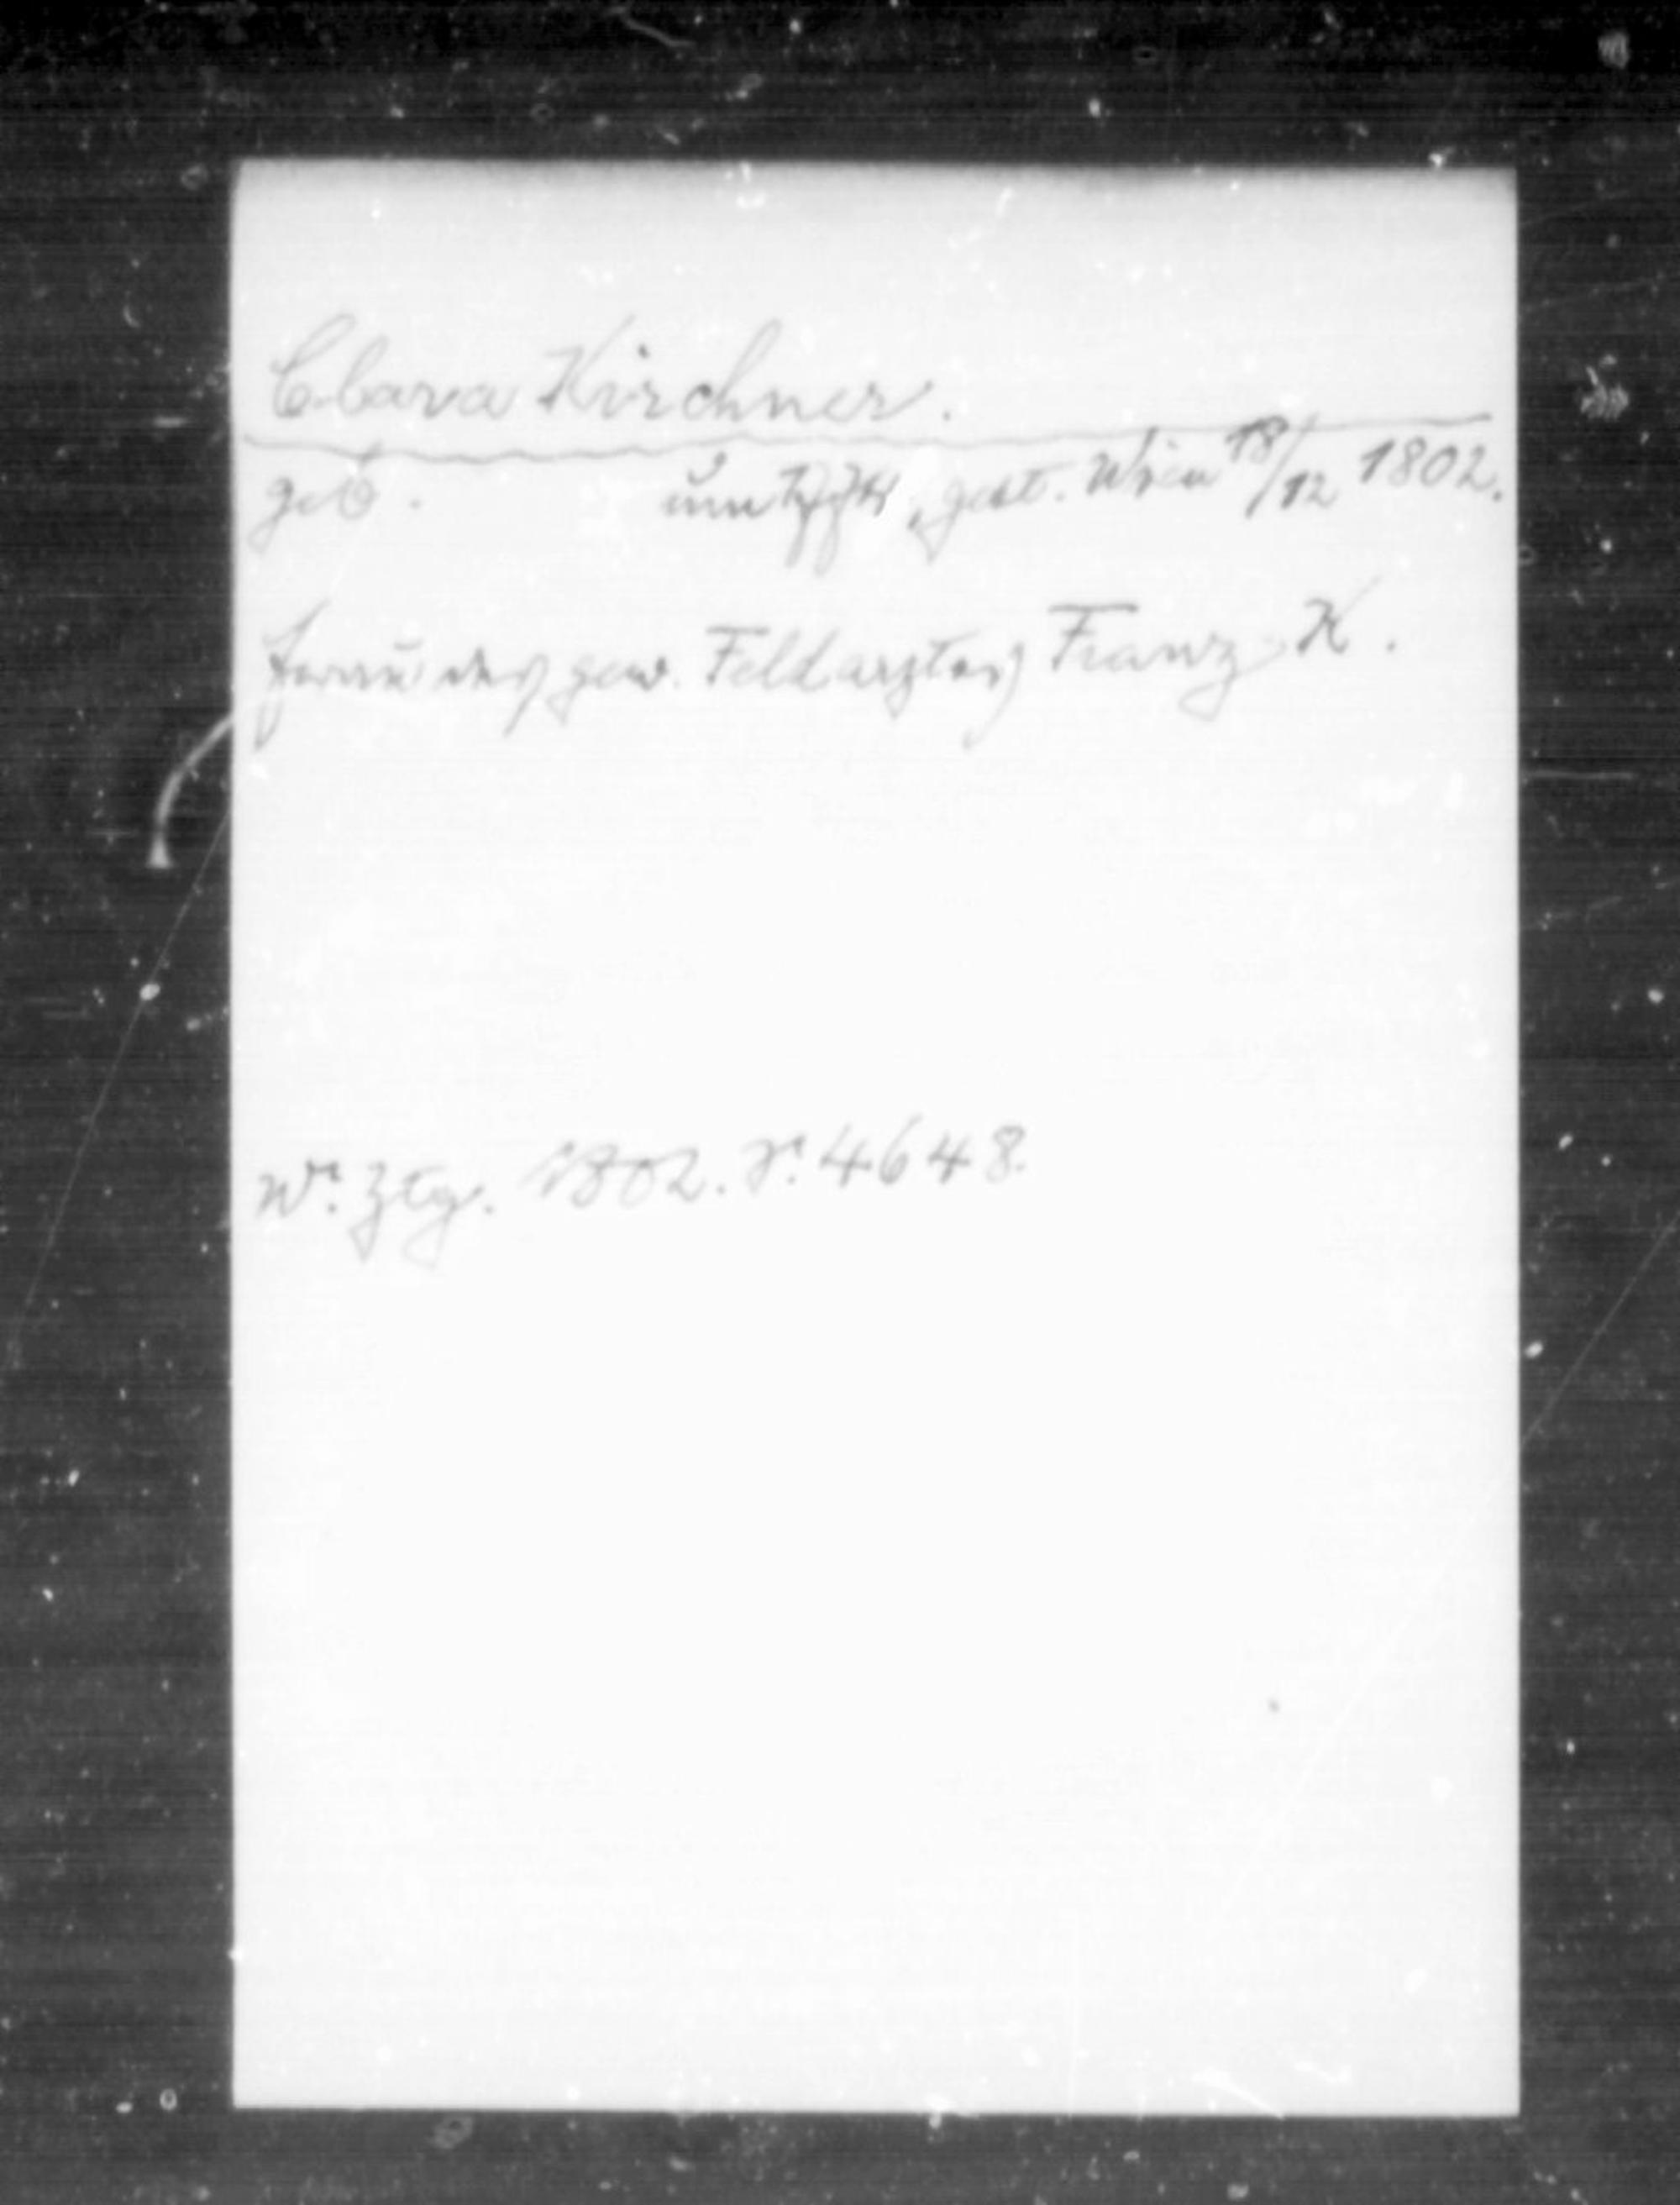 Clara Kirchner.
geb. um, gest. Wien 18/12 1802.
Frau des gew. Feldarztes Franz K.
Wr. Ztg. 1802. S. 4648.